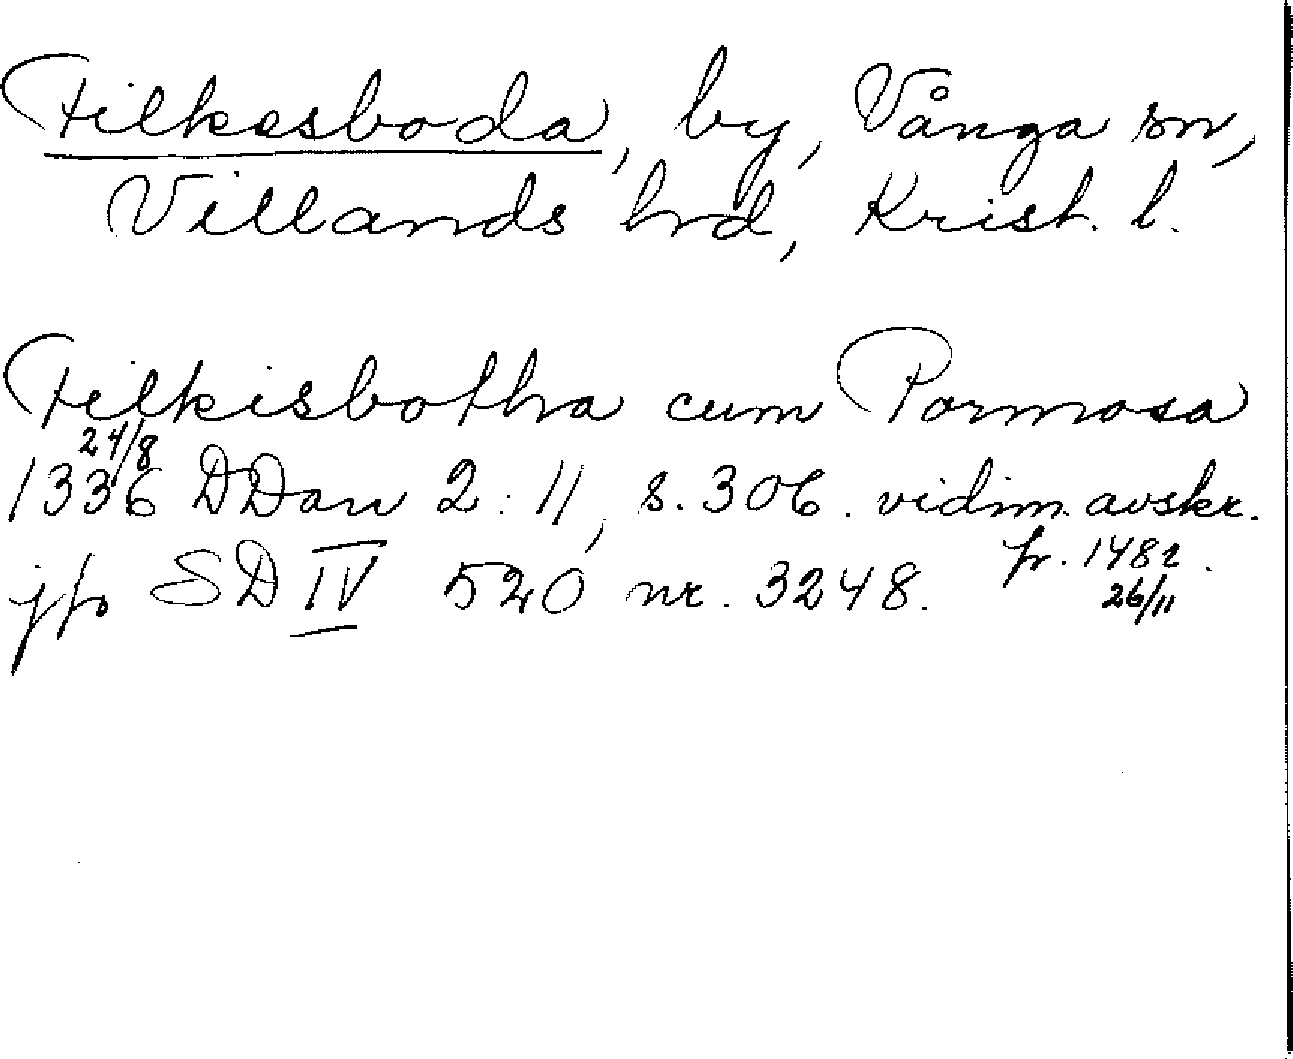 Filkesboda, by, Vånga sn,
Villands hrd, Krist. l.
Filkisbothra cum Pormosa
24/8
1336 DDan 2:11, s. 306. vidim. avskr.
fr. 1482.
jfr SD IV 520 nr. 3248.
26/11